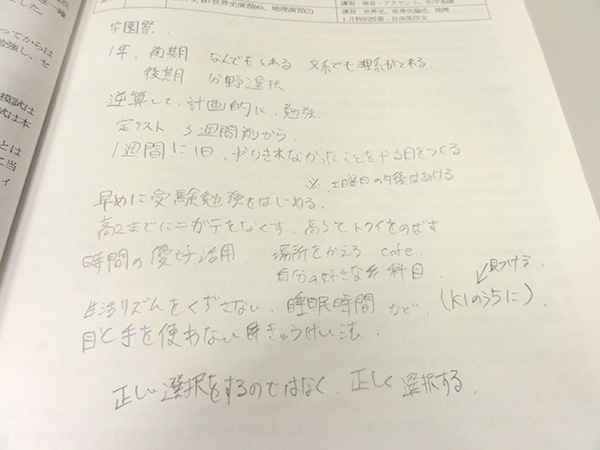 大当
世界史演習(6)、地理演習(2)
講習：発音・アクセント、化学基礎
講習：世界史、世界史論述、地理
1月特別授業：自由英作文
学園祭.
1年. 前期 なんでもくれる 文系でも理系がとれる.
後期 分野選択
逆算して、計画的に、勉強.
定テスト、3週間前から.
1週間に1日、やりきれなかったことをやる日をつくる
※ 土曜日の午後はあける
早めに受験勉強をはじめる.
高2までにニガテをなくす、高3でトクイをのばす
時間の 活用 場所をかえる cafe.
自分の好きな 科目.
見つける.
生活リズムをくずさない. 睡眠時間 など. (K1のうちに).
目と手を使わない きゅうけい法.
正しい選択をするのではなく. 正しく選択する.